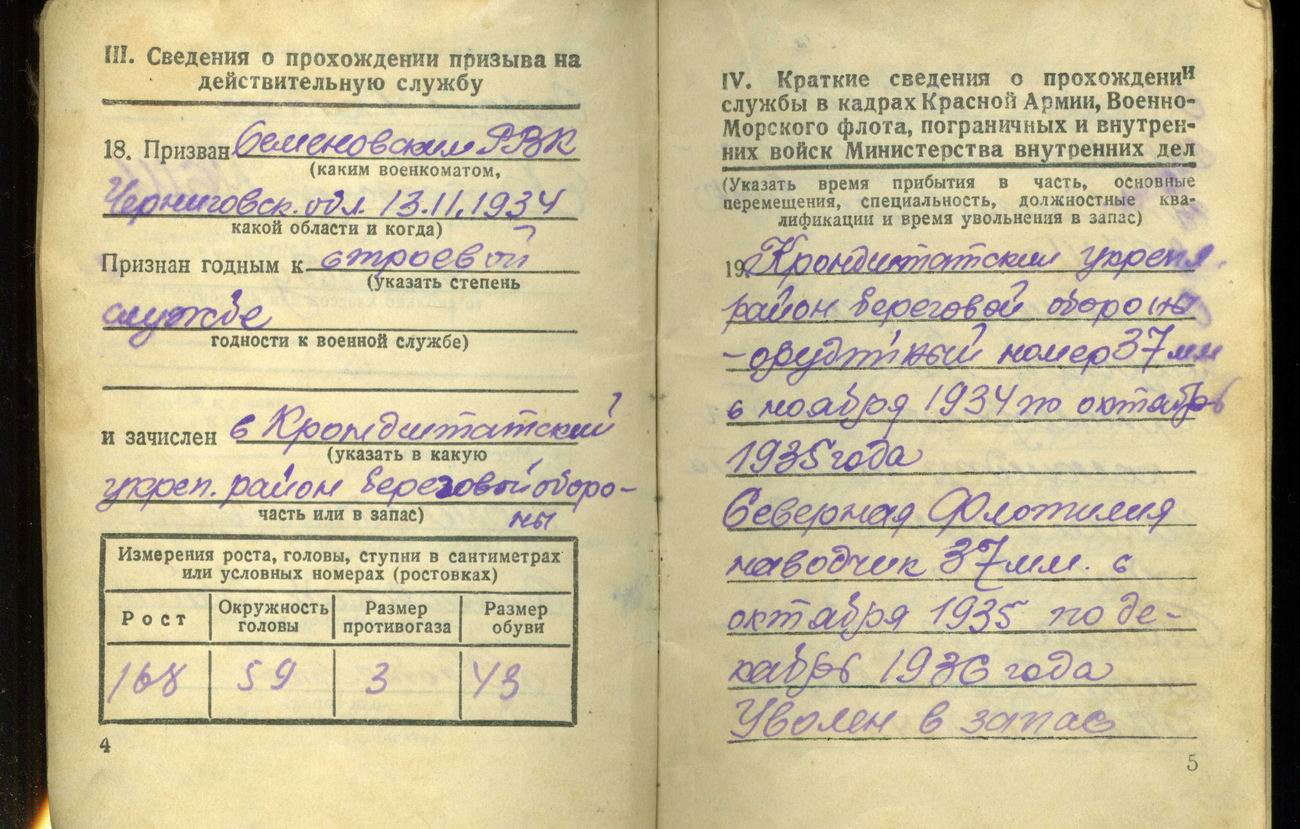 III. Сведения о прохождении призыва на
действительную службу
18. Призван Семеновским РВК
(каким военкоматом,
Черниговск. обл. 13.11.1934
какой области и когда)
Признан годным к строевой
(указать степень
службе
годности к военной службе)
и зачислен в Кронштатский
(указать в какую
укреп. район береговой оборо-
часть или в запас)
ны
Измерения роста, головы, ступни в сантиметрах
или условных номерах (ростовках)
Рост
Окружность
головы
Размер
противогаза
Размер
обуви
168 59 3 43
4
IV. Краткие сведения о прохождении
службы в кадрах Красной Армии, Военно-
Морского флота, пограничных и внутрен-
них войск Министерства внутренних дел
(Указать время прибытия в часть, основные
перемещения, специальность, должностные ква-
лификации и время увольнения в запас)
19. Крондштатский укрепл.
район береговой обороны
- орудийный номер 37 мм
с ноября 1934 по октябрь
1935 года
Северная Флотилия
наводчик 37 мм. с
октября 1935 по де-
кабрь 1936 года
Уволен в запас
5